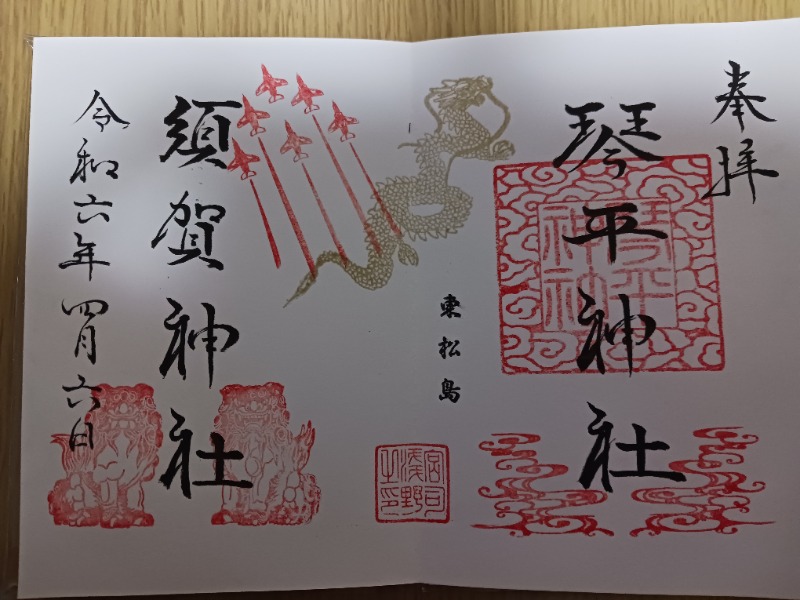 奉拝
琴平神社
琴平神社
東松島
宮司浅野之印
須賀神社
令和六年四月六日